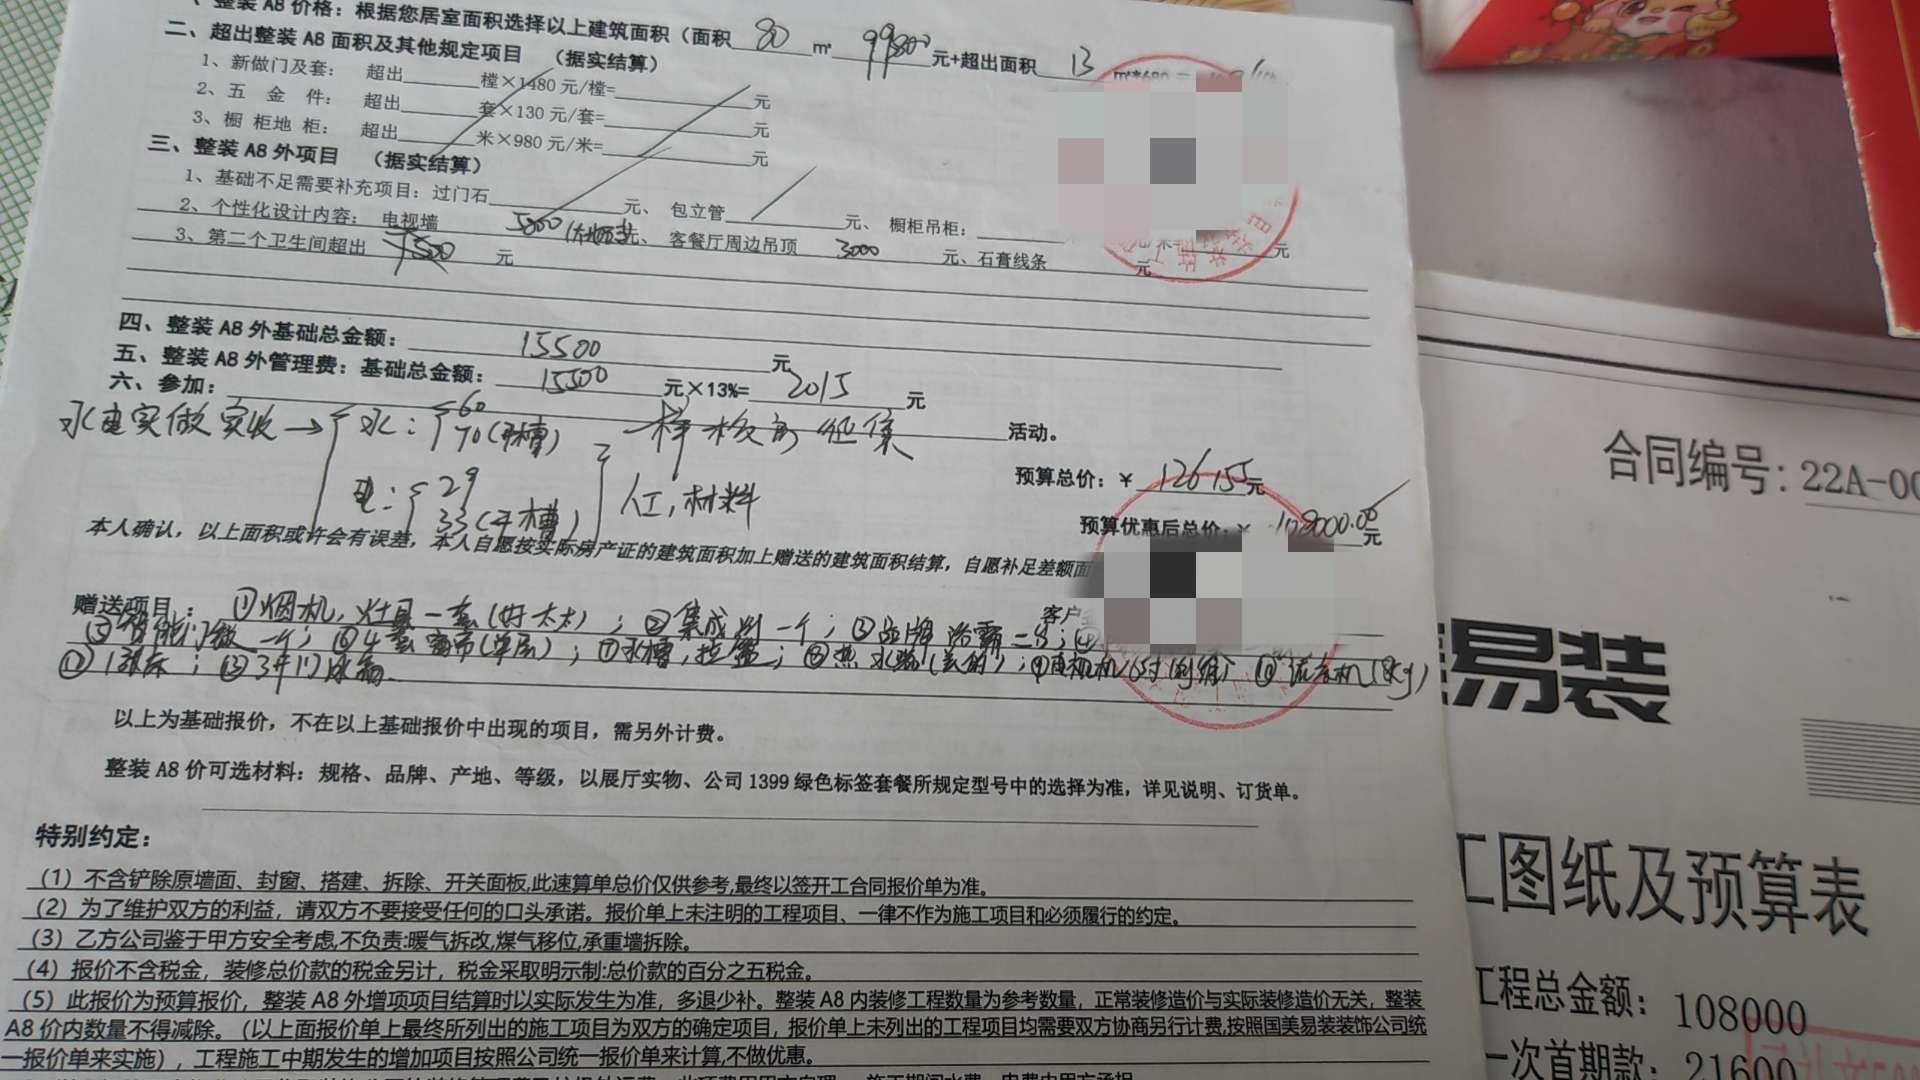 、整装 A8 价格：根据您居室面积选择以上建筑面积（面积 80 ㎡ 99800 元+超出面积 13 m²*680 元
二、超出整装 A8 面积及其他规定项目 （据实结算）
1、新做门及套： 超出 樘×1480 元/樘= 元
2、五 金 件： 超出 套×130 元/套= 元
3、橱 柜地 柜： 超出 米×980 元/米= 元
三、整装 A8 外项目 （据实结算）
1、基础不足需要补充项目：过门石 元、 包立管 元、 橱柜吊柜： 元/米= 元
2、个性化设计内容： 电视墙 5000 元、 客餐厅周边吊顶 3000 元、石膏线条 元
3、第二个卫生间超出 7500 元
四、整装 A8 外基础总金额： 15500 元
五、整装 A8 外管理费：基础总金额： 15500 元×13%= 2015 元
六、参加： 样板房征集 活动。
水电实做实收→ 水： 60
70(开槽)
电： 29
33(开槽) 人工,材料
预算总价：￥ 126155元
预算优惠后总价：￥ 108000.00元
本人确认，以上面积或许会有误差，本人自愿按实际房产证的建筑面积加上赠送的建筑面积结算，自愿补足差额面
赠送项目： ①烟机,灶具一套(好太太)；②集成灶一个；③品牌浴霸二台；④
客户
⑤智能门锁一个；⑥4套窗帘(单层)；⑦水槽,拉篮；⑧热水器(美的)；⑨电视机 ⑩洗衣机(8Kg)
1张床；3开门冰箱.
以上为基础报价，不在以上基础报价中出现的项目，需另外计费。
整装 A8 价可选材料：规格、品牌、产地、等级，以展厅实物、公司 1399 绿色标签套餐所规定型号中的选择为准，详见说明、订货单。
特别约定：
（1）不含铲除原墙面、封窗、搭建、拆除、开关面板,此速算单总价仅供参考,最终以签开工合同报价单为准。
（2）为了维护双方的利益，请双方不要接受任何的口头承诺。报价单上未注明的工程项目、一律不作为施工项目和必须履行的约定。
（3）乙方公司鉴于甲方安全考虑,不负责:暖气拆改,煤气移位,承重墙拆除。
（4）报价不含税金，装修总价款的税金另计，税金采取明示制:总价款的百分之五税金。
（5）此报价为预算报价，整装 A8 外增项项目结算时以实际发生为准，多退少补。整装 A8 内装修工程数量为参考数量，正常装修造价与实际装修造价无关，整装
A8 价内数量不得减除。（以上面报价单上最终所列出的施工项目为双方的确定项目，报价单上未列出的工程项目均需要双方协商另行计费,按照国美易装装饰公司统
一报价单来实施），工程施工中期发生的增加项目按照公司统一报价单来计算,不做优惠。
合同编号：22A-00
易装
工图纸及预算表
工程总金额：108000
一次首期款：21600